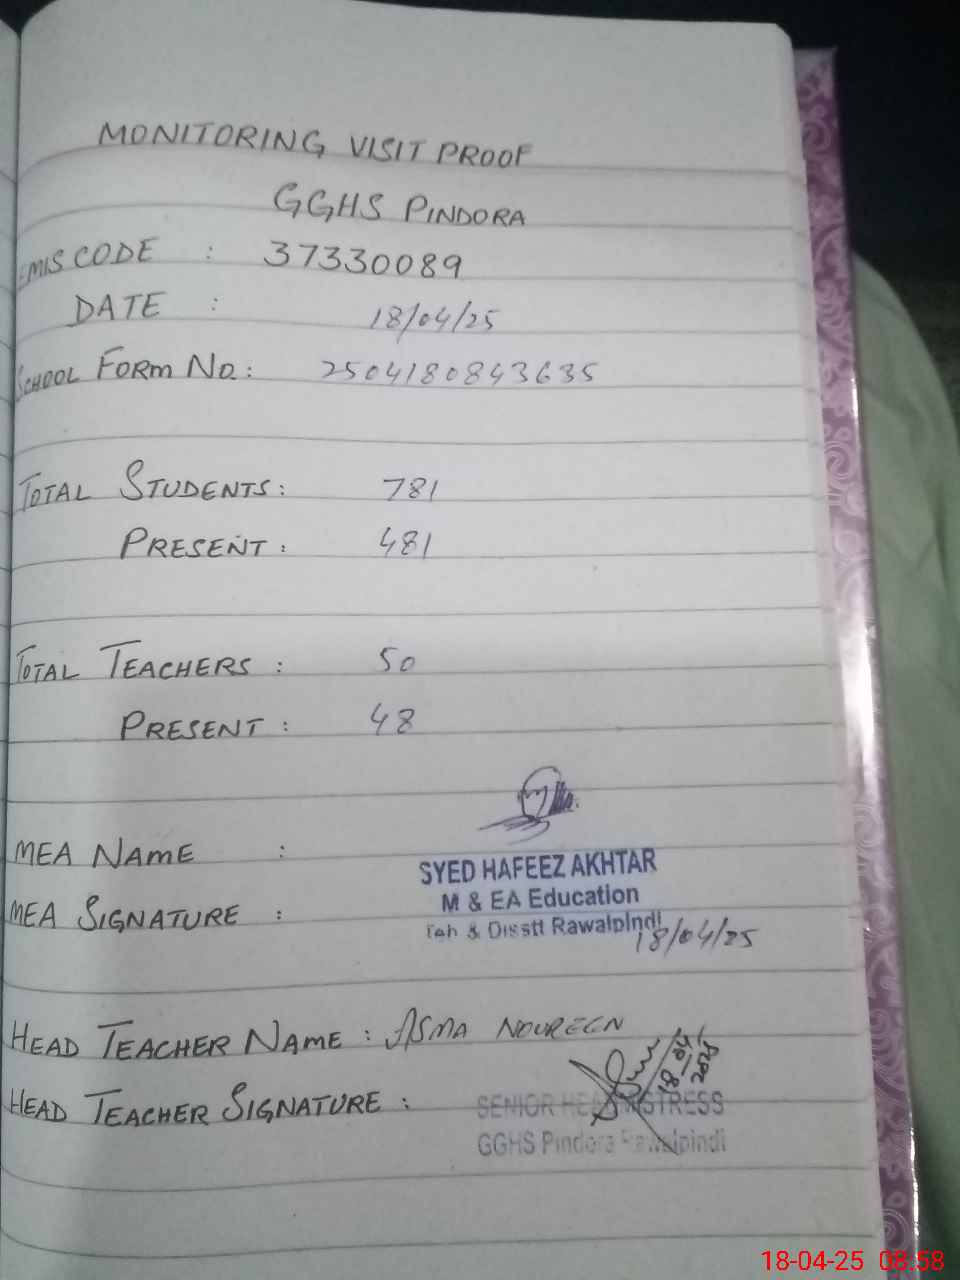 MONITORING VISIT PROOF
GGHS PINDORA
EMIS CODE : 37330089
DATE : 18/04/25
SCHOOL FORM NO: 2504180843635
TOTAL STUDENTS: 781
PRESENT: 481
TOTAL TEACHERS: 50
PRESENT: 48
MEA NAME :
SYED HAFEEZ AKHTAR
M & EA Education
MEA SIGNATURE :
Teh & Disstt Rawalpindi
18/04/25
HEAD TEACHER NAME: ASMA NOUREEN
18-04-2025
HEAD TEACHER SIGNATURE:
SENIOR HEADMISTRESS
GGHS Pindora Rawalpindi
18-04-25 08:58